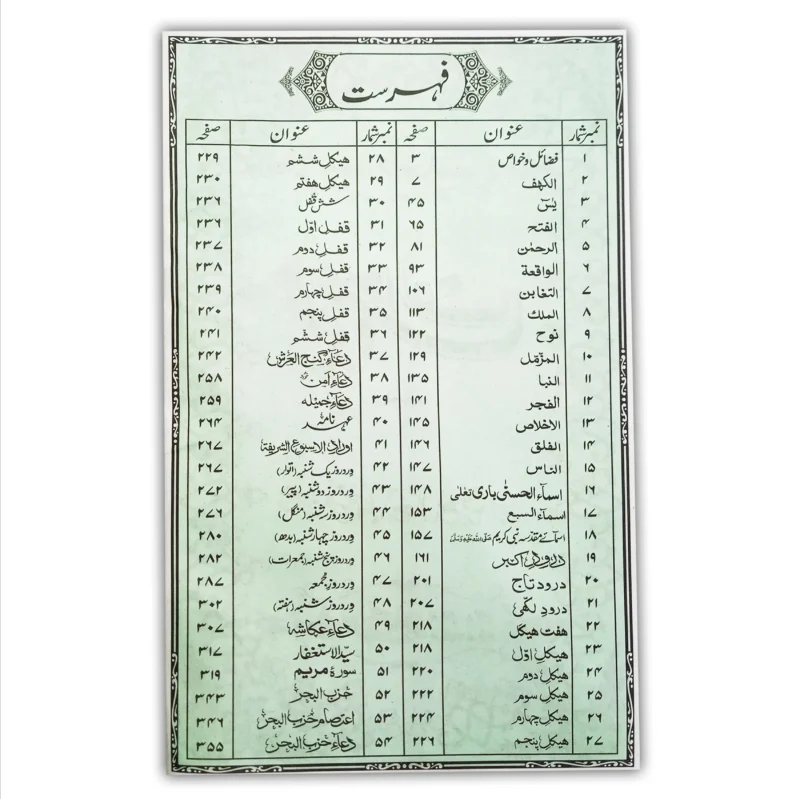 فہرست
نمبر شمار عنوان صفحہ نمبر شمار عنوان صفحہ
۱ فضائل و خواص ۳ ۲۸ ھیکلِ ششم ۲۲۹
۲ الکہف ۷ ۲۹ ھیکلِ ہفتم ۲۳۰
۳ یٰسٓ ۴۵ ۳۰ شش قفل ۲۳۶
۴ الفتح ۶۵ ۳۱ قفلِ اوّل ۲۳۶
۵ الرحمٰن ۸۱ ۳۲ قفلِ دوم ۲۳۷
۶ الواقعۃ ۹۳ ۳۳ قفلِ سوم ۲۳۸
۷ التغابن ۱۰۶ ۳۴ قفلِ چہارم ۲۳۹
۸ الملک ۱۱۳ ۳۵ قفلِ پنجم ۲۴۰
۹ نوح ۱۲۲ ۳۶ قفلِ ششم ۲۴۱
۱۰ المزّمل ۱۲۹ ۳۷ دعاءِ گنج العرش ۲۴۲
۱۱ النبا ۱۳۵ ۳۸ دعاءِ امن ۲۵۸
۱۲ الفجر ۱۴۱ ۳۹ دعاءِ جمیلہ ۲۵۹
۱۳ الاخلاص ۱۴۵ ۴۰ عہد نامہ ۲۶۴
۱۴ الفلق ۱۴۶ ۴۱ اوراد الاسبوع الشریفۃ ۲۶۷
۱۵ الناس ۱۴۷ ۴۲ وردِ روز یک شنبہ (اتوار) ۲۶۷
۱۶ اسماء الحسنٰی باری تعالٰی ۱۴۸ ۴۳ وردِ روز دو شنبہ (پیر) ۲۷۲
۱۷ اسماء السبع ۱۵۳ ۴۴ وردِ روز سہ شنبہ (منگل) ۲۷۶
۱۸ اسمائے مقدسہ نبی کریم صلی اللہ علیہ وسلم ۱۵۷ ۴۵ وردِ روز چہار شنبہ (بدھ) ۲۸۰
۱۹ درودِ اکبر ۱۶۱ ۴۶ وردِ روز پنج شنبہ (جمعرات) ۲۸۲
۲۰ درود تاج ۲۰۱ ۴۷ وردِ روز جمعہ ۲۸۷
۲۱ درودِ لکھی ۲۰۷ ۴۸ وردِ روز شنبہ (ہفتہ) ۳۰۲
۲۲ ھفت ھیکل ۲۱۸ ۴۹ دعاءِ عکاشہ ۳۰۷
۲۳ ھیکلِ اوّل ۲۱۸ ۵۰ سیّد الاستغفار ۳۱۷
۲۴ ھیکلِ دوم ۲۲۰ ۵۱ سورۂ مریم ۳۱۹
۲۵ ھیکلِ سوم ۲۲۲ ۵۲ حزب البحر ۳۴۳
۲۶ ھیکلِ چہارم ۲۲۴ ۵۳ اعتصام حزب البحر ۳۴۶
۲۷ ھیکلِ پنجم ۲۲۶ ۵۴ دعاءِ حزب البحر ۳۵۵